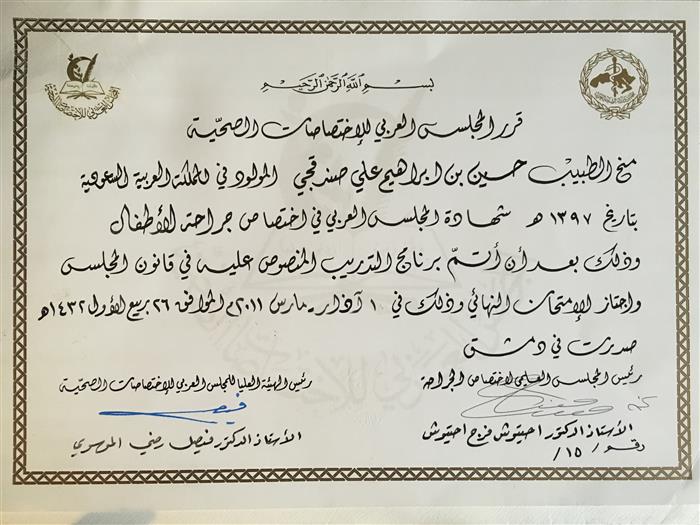 بسم الله الرحمن الرحيم
قرر المجلس العربي للإختصاصات الصحيّة
منح الطبيب حسين بن ابراهيم علي صندقجي المولود في المملكة العربية السعودية
بتاريخ ١٣٩٧ هـ شهادة المجلس العربي في اختصاص جراحة الأطفال
وذلك بعد أن أتمّ برنامج التدريب المنصوص عليه في قانون المجلس
واجتاز الإمتحان النهائي وذلك في ١ آذار - مارس ٢٠١١م الموافق ٢٦ ربيع الأول ١٤٣٢هـ
صدرت في دمشق
رئيس المجلس العلمي لاختصاص الجراحة
الأستاذ الدكتور احتيوش فرج احتيوش
رقم / ١٥ /
رئيس الهيئة العليا للمجلس العربي للإختصاصات الصحيّة
الأستاذ الدكتور فيصل رضي الموسوي